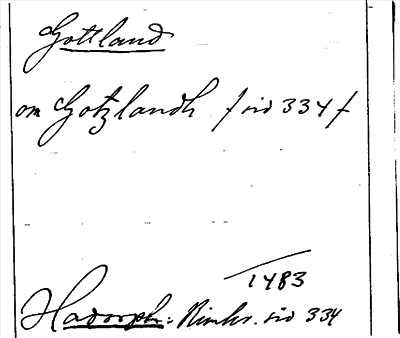 Gottland
om Gotzlandh / sid 334 /
1483
Hadorph: Rimkr. sid 334